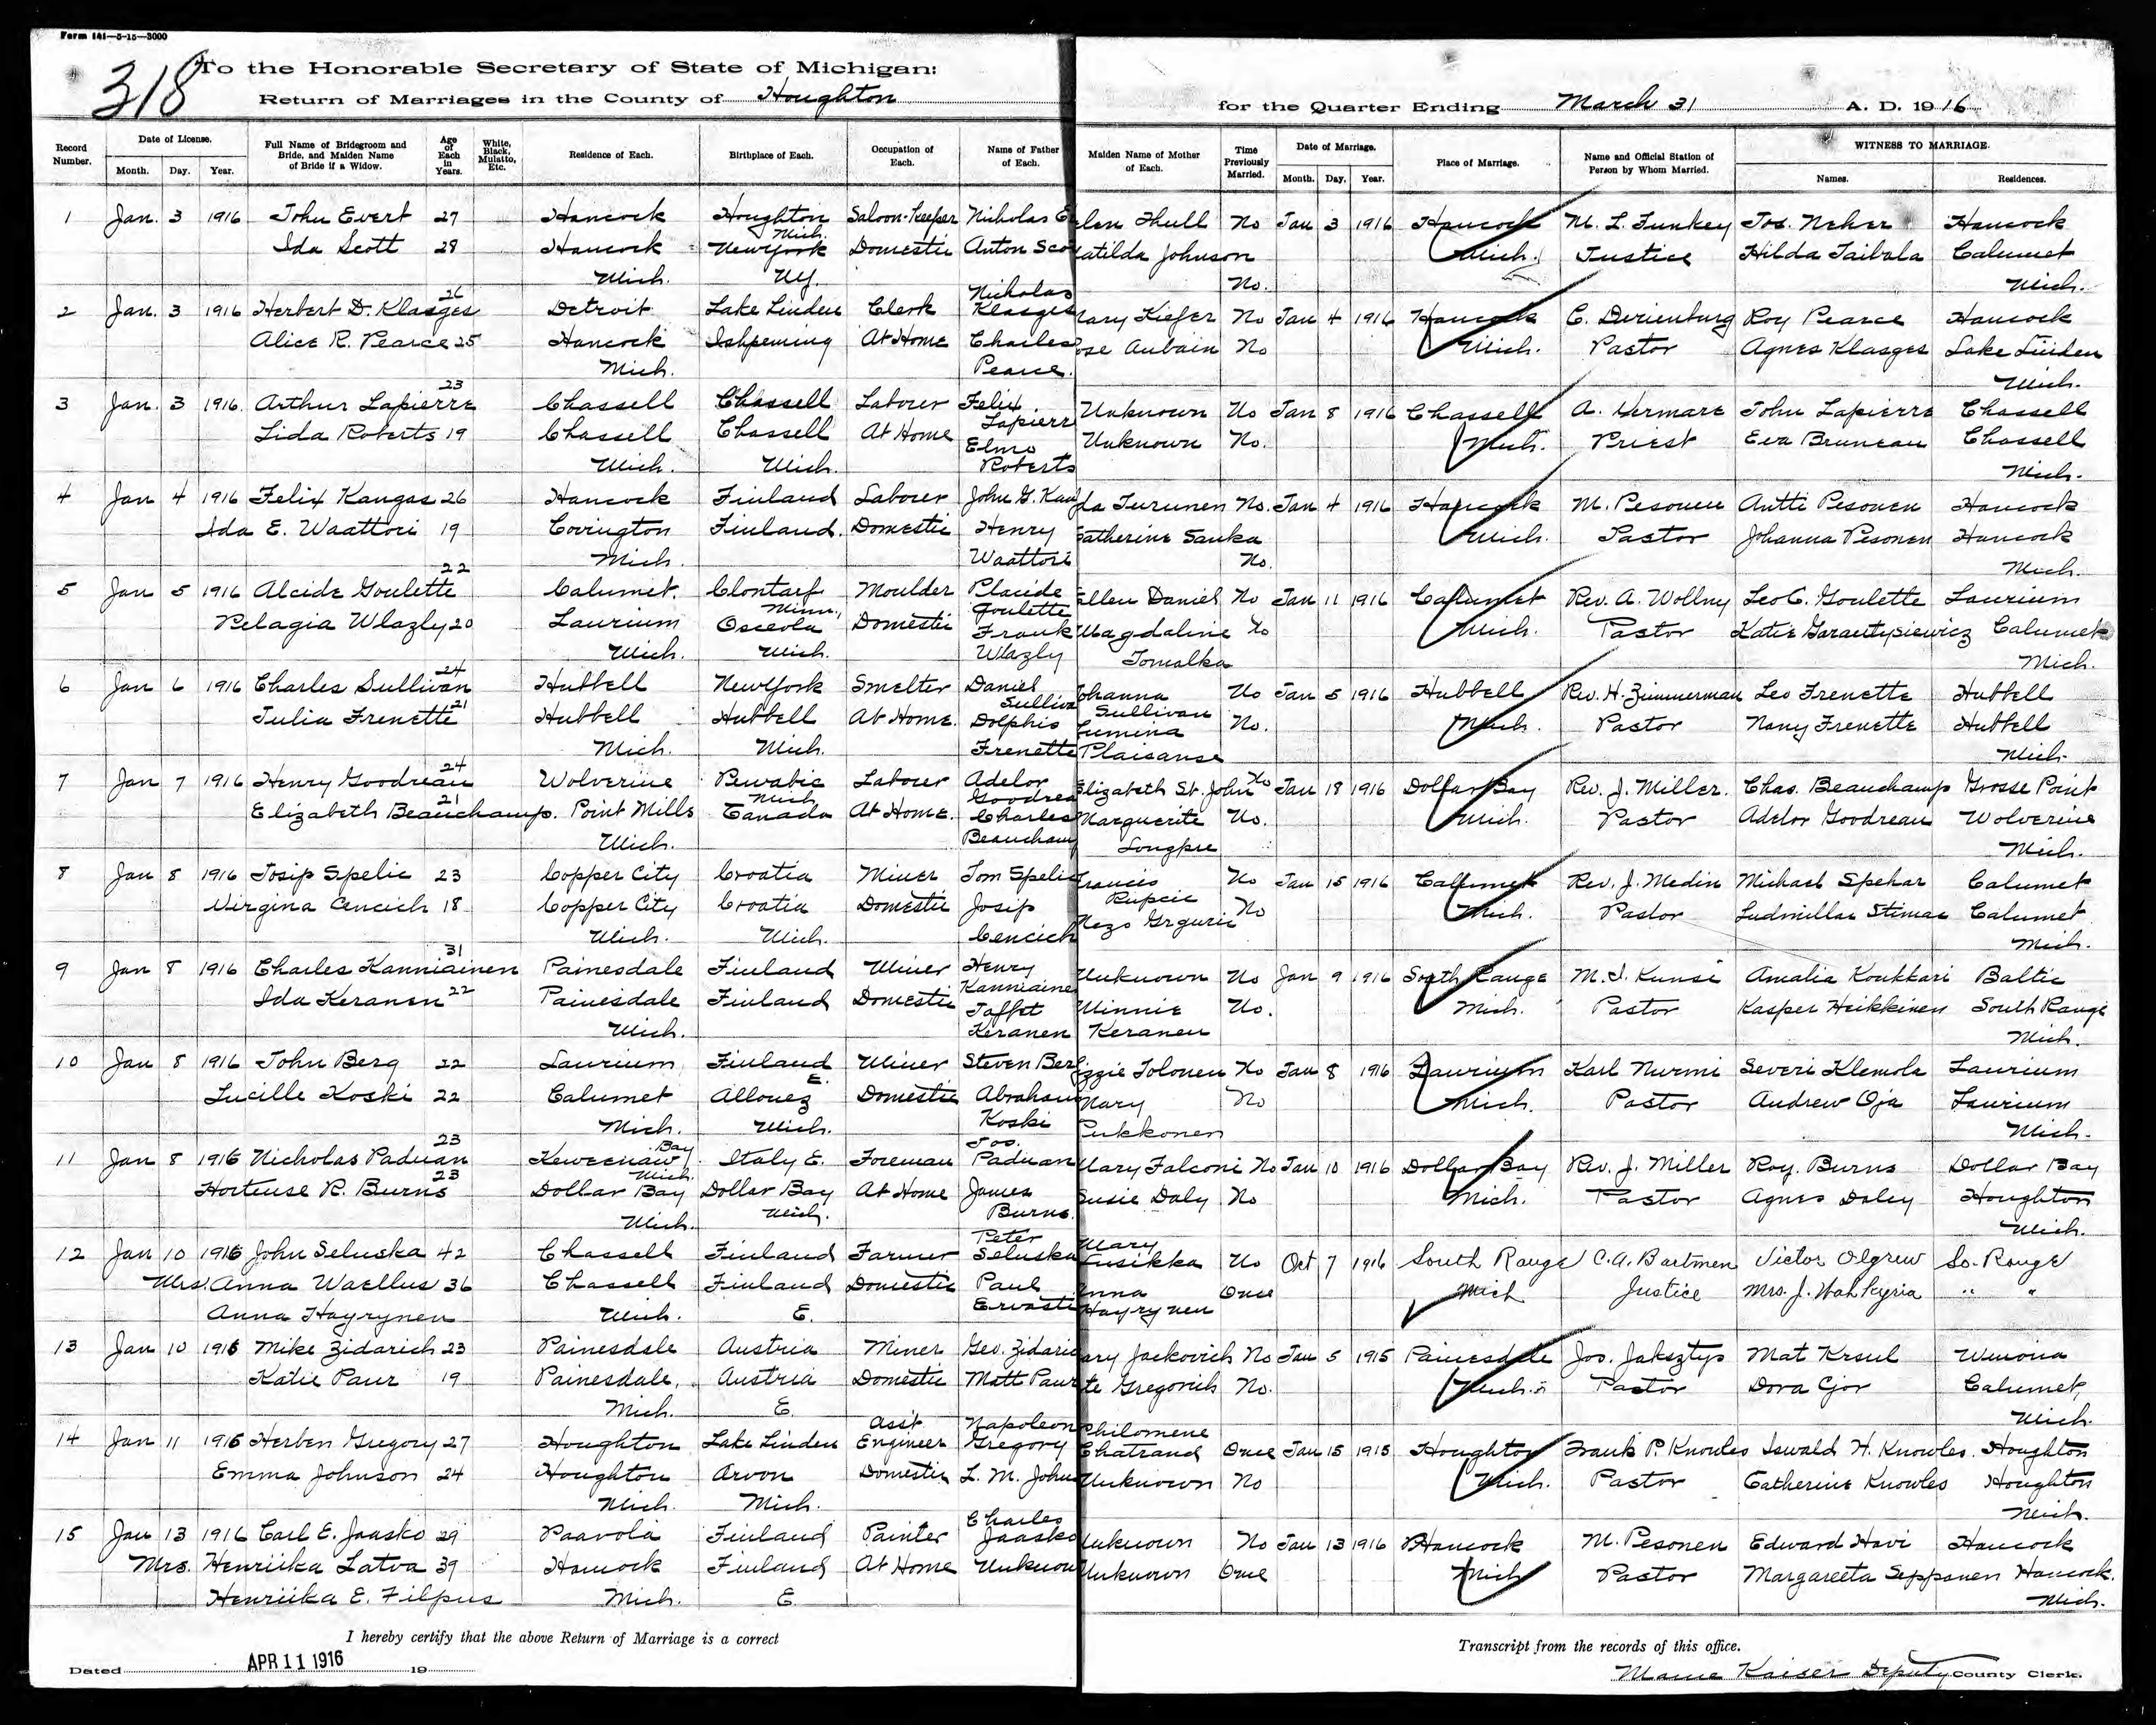 Form 141—5-15—3000
318
To the Honorable Secretary of State of Michigan:
Return of Marriages in the County of Houghton for the Quarter Ending March 31 A. D. 1916
Record Number. Date of License. Month. Day. Year. Full Name of Bridegroom and Bride, and Maiden Name of Bride if a Widow. Age of Each in Years. White, Black, Mulatto, Etc. Residence of Each. Birthplace of Each. Occupation of Each. Name of Father of Each. Maiden Name of Mother of Each. Time Previously Married. Date of Marriage. Month. Day. Year. Place of Marriage. Name and Official Station of Person by Whom Married. WITNESS TO MARRIAGE. Names. Residences.
1 Jan. 3 1916 John Evert 27 Hancock Houghton Mich. Saloon-keeper Nicholas E len Thull No Jan 3 1916 Hancock M. L. Funkey Jos. Neher Hancock
Ida Scott 28 Hancock New York Domestic Anton Sco atilda Johnson Mich. Justice Hilda Taibala Calumet
Mich. Ny. No. Mich.
2 Jan. 3 1916 Herbert D. Klasges 26 Detroit Lake Linden Clerk Nicholas Klasges ary Kiefer No Jan 4 1916 Hancock C. Dericuburg Roy Pearce Hancock
Alice R. Pearce 25 Hancock Ishpeming At Home Charles ose Aubain No Mich. Pastor Agnes Klasges Lake Linden
Mich. Pearce. Mich.
3 Jan. 3 1916. Arthur Lapierre 23 Chassell Chassell Laborer Felix Lapierre Unknown No Jan 8 1916 Chassell A. Vermare John Lapierre Chassell
Lida Roberts 19 Chassell Chassell At Home Elmo Unknown No. Mich. Priest Eva Bruneau Chassell
Mich. Mich. Roberts Mich.
4 Jan 4 1916 Felix Kangas 26 Hancock Finland Laborer John G. Kan da Turunen No. Jan 4 1916 Hancock M. Pesonen Antti Pesonen Hancock
Ida E. Waattori 19 Covington Finland. Domestic Henry Catherine Sauka Mich. Pastor Johanna Pesonen Hancock
Mich. Waattori No. Mich.
5 Jan 5 1916 Alcide Goulette 22 Calumet. Clontarf Minn. Moulder Placide Goulette Ellen Daniel No Jan 11 1916 Calumet Rev. A. Wollny Leo C. Goulette Laurium
Pelagia Wlazly 20 Laurium Osceola Domestic Frank Magdaline No Mich. Pastor Katie Garautypiewicz Calumet
Mich. Mich. Wlazly Tomalka Mich.
6 Jan 6 1916 Charles Sullivan 24 Hubbell New York Smelter Daniel Sulliva Johanna Sullivan No Jan 5 1916 Hubbell Rev. H. Zimmerman Leo Frenette Hubbell
Julia Frenette 21 Hubbell Hubbell At Home. Dolphis Lumina No. Mich. Pastor Nany Frenette Hubbell
Mich. Mich. Frenette Plaisanse Mich.
7 Jan 7 1916 Henry Goodreau 24 Wolverine Pewabic Mich Laborer Adelor Goodrea Elizabeth St. John No Jan 18 1916 Dollar Bay Rev. J. Miller. Chas. Beauchamp Grosse Point
Elizabeth Beauchamp. 21 Point Mills Canada At Home. Charles Marguerite No. Mich. Pastor Adelor Goodreau Wolverine
Mich. Beauchamp Longpre Mich.
8 Jan 8 1916 Josip Spelic 23 Copper City Croatia Miner Tom Spelic Francis Rupcic No Jan 15 1916 Calumet Rev. J. Medin Michael Spehar Calumet
Virgina Cencich 18 Copper City Croatia Domestic Josip Nezo Grguric No Mich. Pastor Ludmillar Stimac Calumet
Mich. Mich. Cencich Mich.
9 Jan 8 1916 Charles Kanniainen 31 Painesdale Finland Miner Henry Kanniaine Unknown No Jan 9 1916 South Range M. I. Kunsi Amalia Koukkari Baltic
Ida Keranen 22 Painesdale Finland Domestic Jaffet Minnie No. Mich. Pastor Kasper Heikkinen South Range
Mich. Keranen Keranen Mich.
10 Jan 8 1916 John Berg 22 Laurium Finland E. Miner Steven Ber izzie Tolonen No Jan 8 1916 Laurium Karl Nurmi Severi Klemola Laurium
Lucille Koski 22 Calumet Allouez Domestic Abraham Mary No Mich. Pastor Andrew Oja Laurium
Mich. Mich. Koski Pukkonen Mich.
11 Jan 8 1916 Nicholas Paduan 23 Keweenaw Bay Mich. Italy E. Foreman Jos. Paduan Mary Falconi No Jan 10 1916 Dollar Bay Rev. J. Miller Roy. Burns Dollar Bay
Hortense R. Burns 23 Dollar Bay Dollar Bay At Home James Susie Daly No Mich. Pastor Agnes Daley Houghton
Mich. Mich. Burns. Mich.
12 Jan 10 1916 John Seluska 42 Chassell Finland Farmer Peter Seluska Mary Fusikka No Oct 7 1916 South Range C. A. Bartmen Victor Olgrew So. Range
Mrs. Anna Waellus 36 Chassell Finland Domestic Paul Anna Once Mich Justice Mrs. J. Wahkyria " "
Anna Hayrynen Mich. E. Ervasti Hayrynen
13 Jan 10 1916 Mike Zidarich 23 Painesdale Austria Miner Geo. Zidaric ary Jackovich No Jan 5 1915 Painesdale Jos. Jaksztys Mat Krsul Winona
Katie Paur 19 Painesdale. Austria Domestic Matt Paur te Gregorich No. Mich. Pastor Dora Cjor Calumet,
Mich. E. Mich.
14 Jan 11 1916 Herben Gregory 27 Houghton Lake Linden Asst Engineer Napoleon Gregory Philomene Chatrand Once Jan 15 1915 Houghton Frank P. Knowles Iswald H. Knowles. Houghton
Emma Johnson 24 Houghton Arvon Domestic L. M. Johns Unknown No Mich. Pastor Catherine Knowles Houghton
Mich. Mich. Mich.
15 Jan 13 1916 Carl E. Jaasko 29 Paavola Finland Painter Charles Jaasko Unknown No Jan 13 1916 Hancock M. Pesonen Edward Havi Hancock
Mrs. Henriika Latva 39 Hancock Finland At Home Unknow Unknown One Mich Pastor Margareeta Seppanen Hancock.
Henriika E. Filpus Mich. E. Mich.
I hereby certify that the above Return of Marriage is a correct Transcript from the records of this office.
Dated APR 11 1916 19 Mame Kaiser Deputy County Clerk.